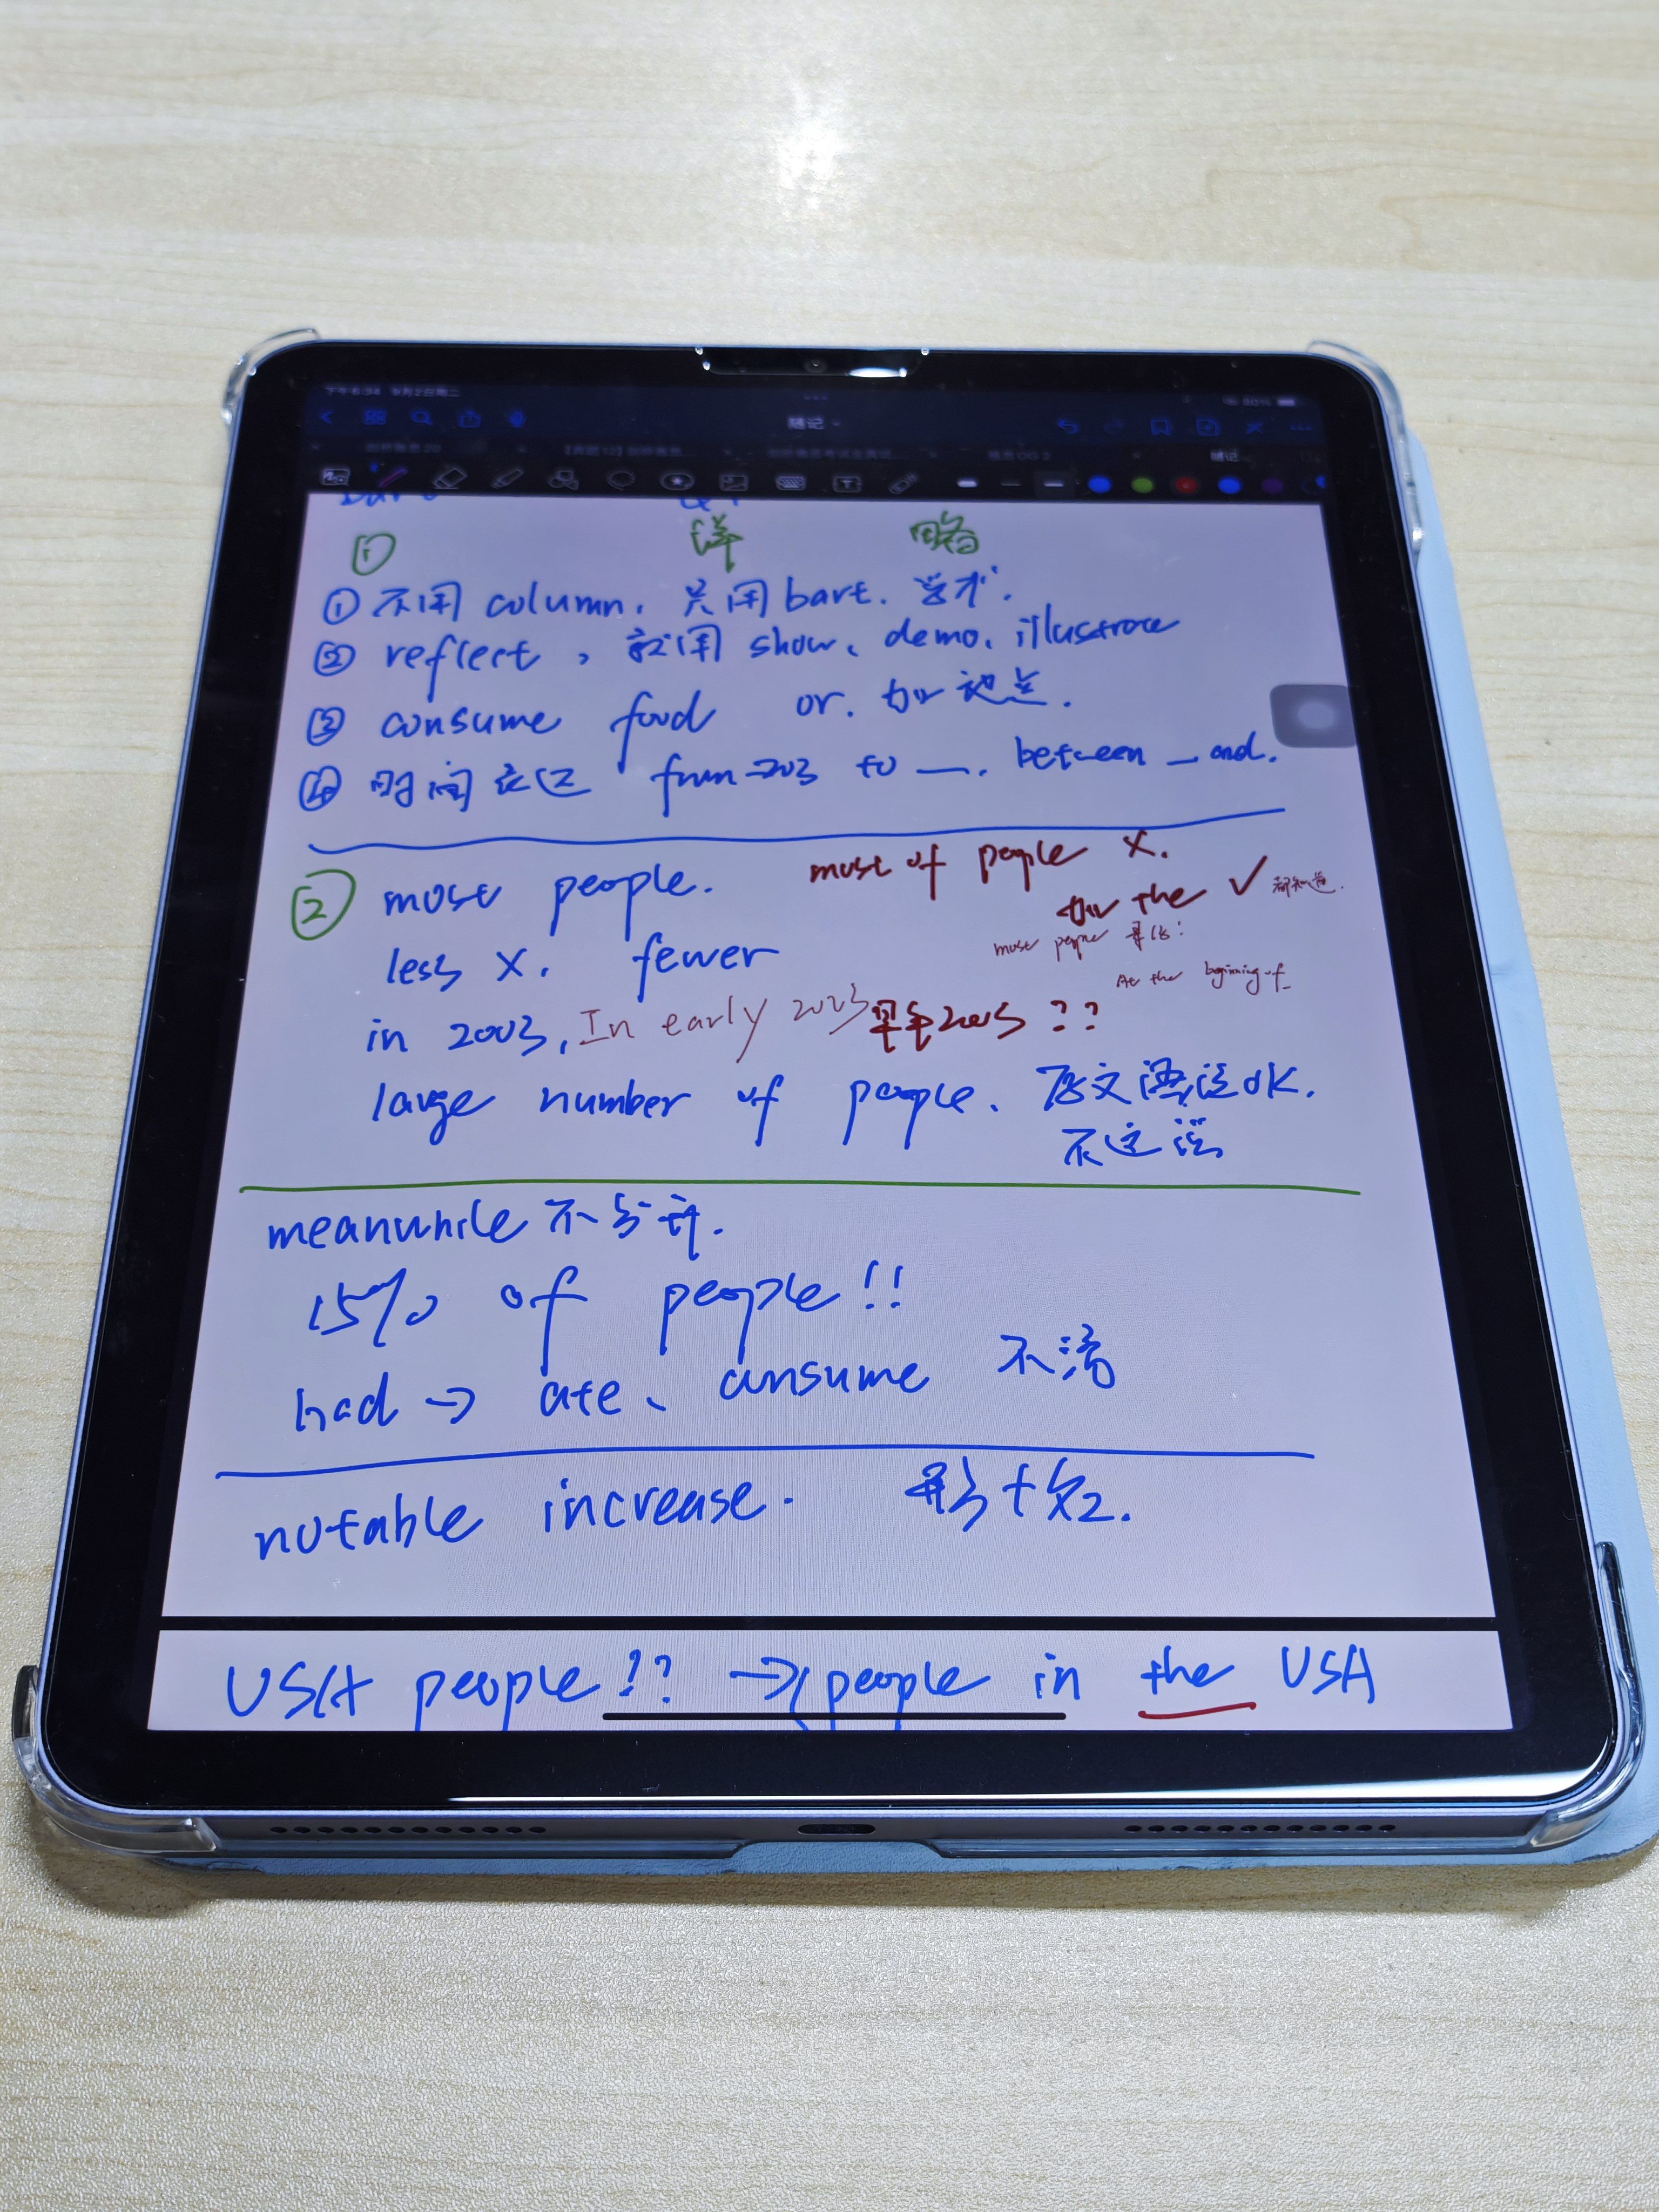 下午6:34 9月2日周二 80%
随记
随记
① 详 略
① 不用 column. 只用 bart. 学术.
② reflect, 就用 show、demo、illustrate
③ consume food or. 加地点.
④ 时间 from 2003 to __. between __ and.
② most people. most of people X.
加 the ✓ 都知道.
most people 语法!
less X. fewer
At the beginning of_
in 2003, In early 2003 早年2003 ??
large number of people. 原文语法OK.
不这说
meanwhile 不
15% of people!!
had → ate、consume 不
notable increase. 形+名.
USA people!? → people in the USA